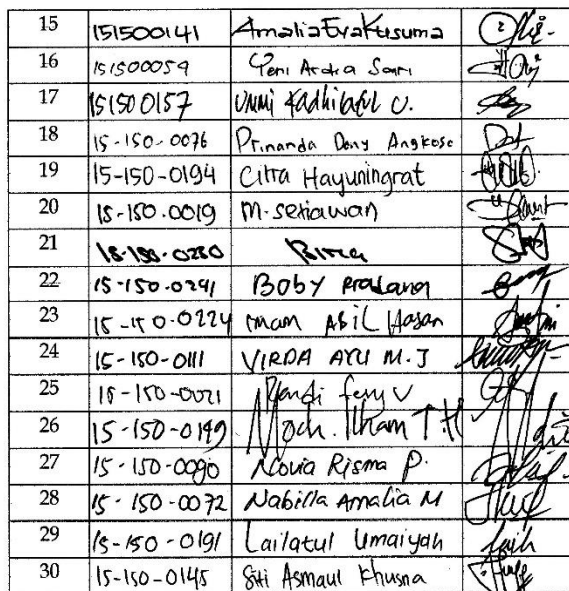 15 151500141 Amalia Eva Kusuma
16 151500059 Yeni Ardra Sari
17 151500157 Ummi Kadhilatul U.
18 15-150-0076 Prinanda Dony Angkoso
19 15-150-0194 Citra Hayuningrat
20 15-150.0019 M. Setiawan
21 15-150-0280
22 15-150-0241 Boby Pradana
23 15-150-0224 Imam Abil Hasan
24 15-150-0111 VIRDA AYU M.J
25 15-150-0021 Rendi fery V
26 15-150-0149 Moch. Ilham T.H
27 15-150-0090 Novia Risma P.
28 15-150-0072 Nabilla Amalia M
29 15-150-0191 Lailatul Umaiyah
30 15-150-0145 Siti Asmaul Khusna